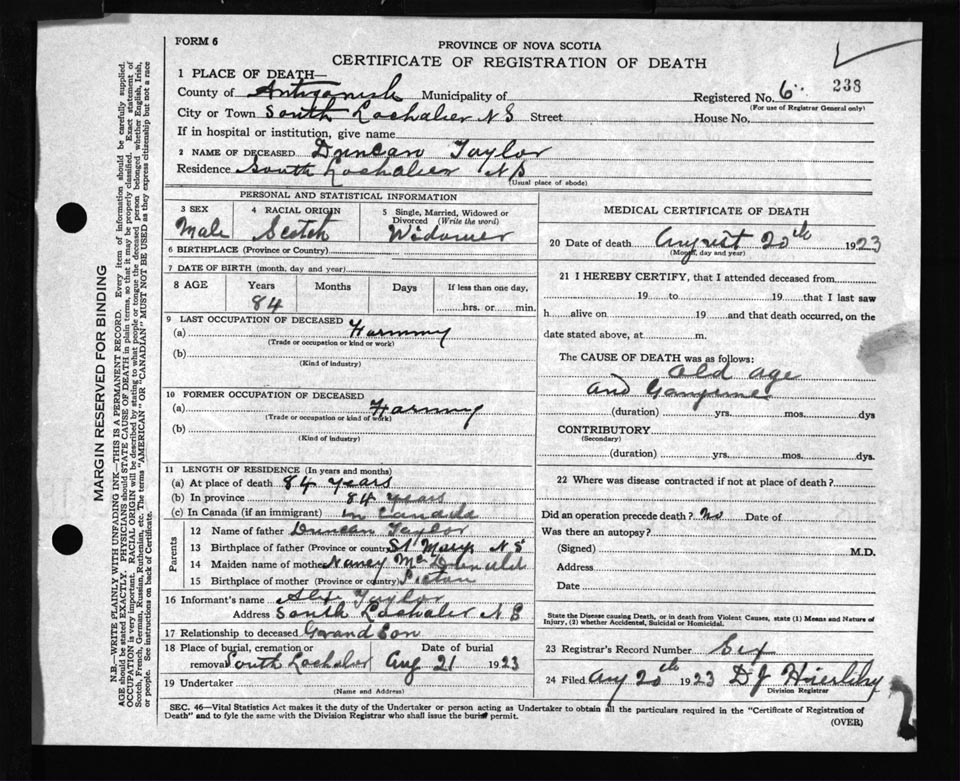 FORM 6
PROVINCE OF NOVA SCOTIA
CERTIFICATE OF REGISTRATION OF DEATH
238
1 PLACE OF DEATH—
County of Antigonish Municipality of Registered No. 6
(For use of Registrar General only)
City or Town South Lochaber N S Street House No.
If in hospital or institution, give name
2 NAME OF DECEASED Duncan Taylor
Residence South Lochaber N S
(Usual place of abode)
PERSONAL AND STATISTICAL INFORMATION
3 SEX 4 RACIAL ORIGIN 5 Single, Married, Widowed or Divorced (Write the word)
Male Scotch Widower
6 BIRTHPLACE (Province or Country)
7 DATE OF BIRTH (month, day and year)
8 AGE Years Months Days If less than one day,
84 hrs. or min.
9 LAST OCCUPATION OF DECEASED
(a) Farming
(Trade or occupation or kind or work)
(b)
(Kind of industry)
10 FORMER OCCUPATION OF DECEASED
(a) Farming
(Trade or occupation or kind of work)
(b)
(Kind of industry)
11 LENGTH OF RESIDENCE (In years and months)
(a) At place of death 84 years
(b) In province 84 years
(c) In Canada (if an immigrant) in Canada
Parents
12 Name of father Duncan Taylor
13 Birthplace of father (Province or country) St Marys N S
14 Maiden name of mother Nancy McDonald
15 Birthplace of mother (Province or country) Pictou
16 Informant's name Alex Taylor
Address South Lochaber N S
17 Relationship to deceased Grand Son
18 Place of burial, cremation or Date of burial
removal South Lochaber Aug 21 1923
19 Undertaker
(Name and Address)
MEDICAL CERTIFICATE OF DEATH
20 Date of death August 20th 1923
(Month, day and year)
21 I HEREBY CERTIFY, that I attended deceased from
19 to 19 that I last saw
h alive on 19 and that death occurred, on the
date stated above, at m.
The CAUSE OF DEATH was as follows:
Old age
and Gangrene
(duration) yrs. mos. dys
CONTRIBUTORY
(Secondary)
(duration) yrs. mos. dys.
22 Where was disease contracted if not at place of death?
Did an operation precede death? no Date of
Was there an autopsy?
(Signed) M.D.
Address
Date
State the Disease causing Death, or in death from Violent Causes, state (1) Means and Nature of
Injury, (2) whether Accidental, Suicidal or Homicidal.
23 Registrar's Record Number Six
24 Filed Aug 20th 1923 D J
Division Registrar
SEC. 46—Vital Statistics Act makes it the duty of the Undertaker or person acting as Undertaker to obtain all the particulars required in the "Certificate of Registration of
Death" and to fyle the same with the Division Registrar who shall issue the burial permit.
(OVER)
MARGIN RESERVED FOR BINDING
N.B.—WRITE PLAINLY WITH UNFADING INK—THIS IS A PERMANENT RECORD. Every item of information should be carefully supplied.
AGE should be stated EXACTLY. PHYSICIANS should STATE CAUSE OF DEATH in plain terms, so that it may be properly classified. Exact statement of
OCCUPATION is very important. RACIAL ORIGIN will be described by stating to what people or tongue the deceased person belonged whether English, Irish,
Scotch, French, German, Russian, Ruthenian, etc. The terms "AMERICAN" OR "CANADIAN" MUST NOT BE USED as they express citizenship but not a race
or people. See instructions on back of Certificate.